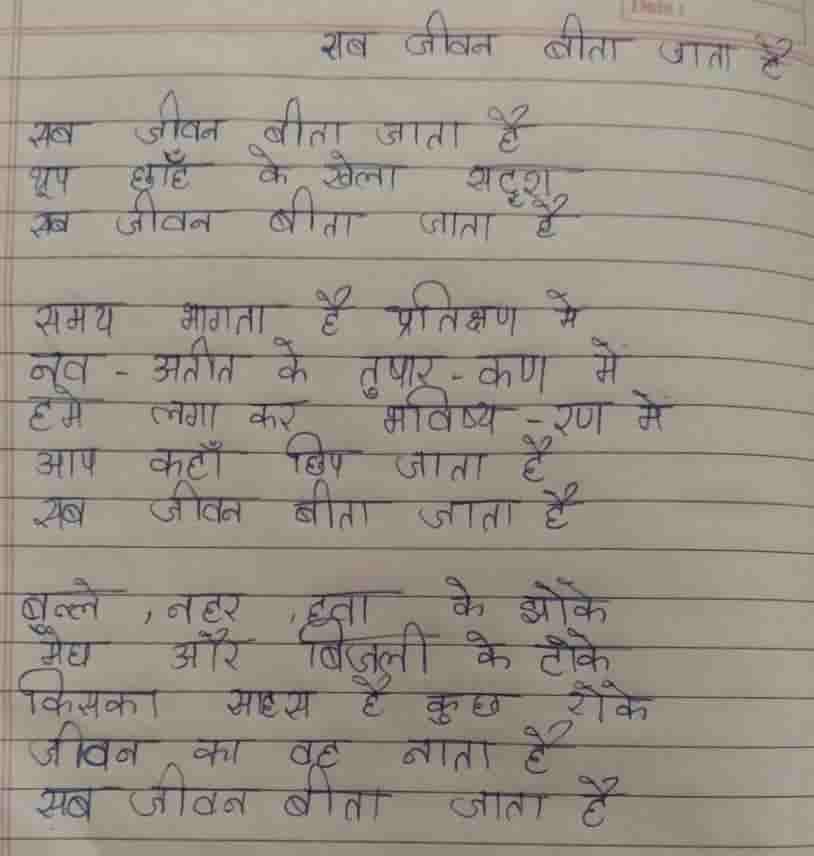 सब जीवन बीता जाता है
सब जीवन बीता जाता है
धूप छाँह के खेला सदृश
सब जीवन बीता जाता है
समय भागता है प्रतिक्षण में
नव - अतीत के तुषार - कण में
हमे लगा कर भविष्य - रण में
आप कहाँ छिप जाता है
सब जीवन बीता जाता है
बुल्ले , नहर , हवा के झोंके
मेघ और बिजली के टोंके
किसका साहस है कुछ रोके
जीवन का वह नाता है
सब जीवन बीता जाता है